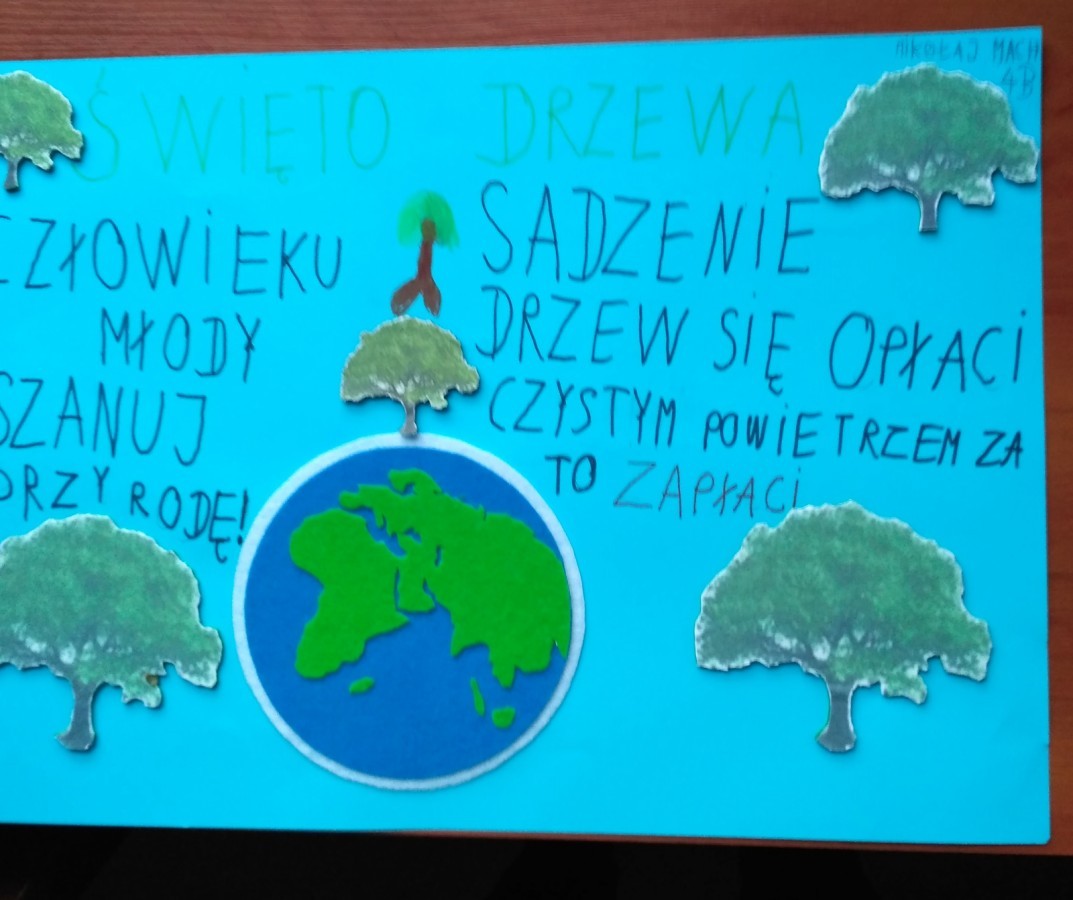 MIKOŁAJ MACH
4B
ŚWIĘTO DRZEWA
CZŁOWIEKU
MŁODY
SZANUJ
PRZYRODĘ!
SADZENIE
DRZEW SIĘ OPŁACI
CZYSTYM POWIETRZEM ZA
TO ZAPŁACI